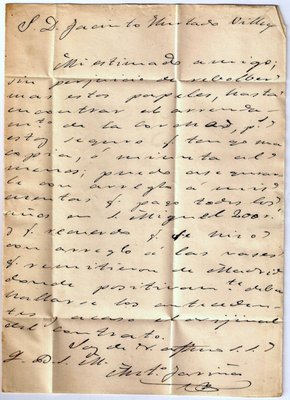 S. D. Jacinto Hurtado Villeg
Mi estimado amigo;
sin perjuicio de rebolber
mas estos papeles, hasta
encontrar el arrenda
mto de la p.s
estoy seguro q tengo una
copia, o minuta al
menos, puedo asegurar
le con arreglo á mis
cuentas q. pago todos los
años en S. Miguel 200 rs.
y recuerdo q. se hizo
con arreglo a las vases
q. remitieron de Madrid
donde positivamte. deben
hallarse los anteceden
tes y acaso el original
del contrato.
Soy de V. affmo. s. s.
q. B. S. M.
Anto. Fariña